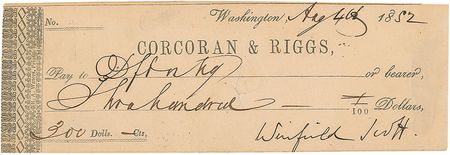 No. Washington, Aug 1852
CORCORAN & RIGGS,
Pay to or bearer,
hundred — 1/100 Dollars,
200 Dolls. — Cts. Winfield Scott